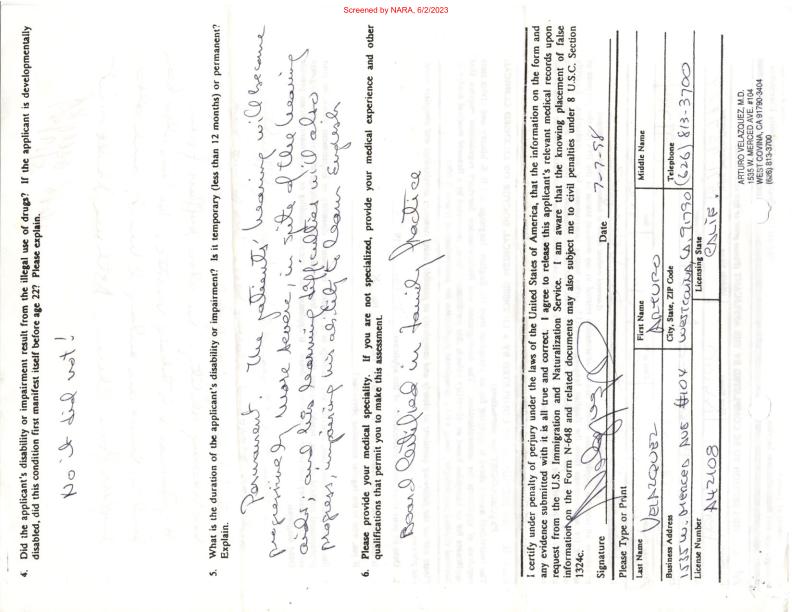 Screened by NARA, 6/2/2023
4. Did the applicant's disability or impairment result from the illegal use of drugs? If the applicant is developmentally
disabled, did this condition first manifest itself before age 22? Please explain.
No it did not!
5. What is the duration of the applicant's disability or impairment? Is it temporary (less than 12 months) or permanent?
Explain.
Permanent. The patients' hearing will become
progressively more severe, in spite of the hearing
aids; and his learning difficulties will also
progress, impairing his ability to learn English
6. Please provide your medical speciality. If you are not specialized, provide your medical experience and other
qualifications that permit you to make this assessment.
Board Certified in Family Practice
I certify under penalty of perjury under the laws of the United States of America, that the information on the form and
any evidence submitted with it is all true and correct. I agree to release this applicant's relevant medical records upon
request from the U.S. Immigration and Naturalization Service. I am aware that the knowing placement of false
information on the Form N-648 and related documents may also subject me to civil penalties under 8 U.S.C. Section
1324c.
Signature Date 7-7-98
Please Type or Print
Last Name First Name Middle Name
VELAZQUEZ ARTURO
Business Address City, State, ZIP Code Telephone
1535 W. MERCED AVE #104 West Covina, CA. 91790 (626) 813-3700
License Number Licensing State
A42108 CALIF.
ARTURO VELAZQUEZ, M.D.
1535 W. MERCED AVE. #104
WEST COVINA, CA 91790-3404
(626) 813-3700